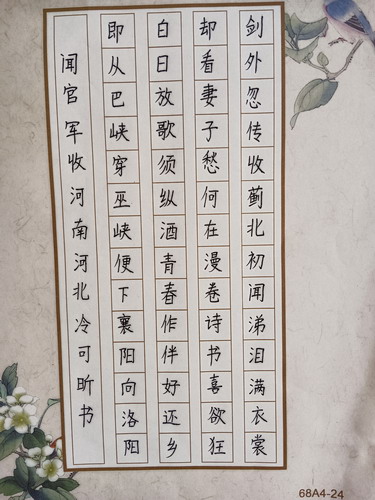 剑外忽传收蓟北初闻涕泪满衣裳
却看妻子愁何在漫卷诗书喜欲狂
白日放歌须纵酒青春作伴好还乡
即从巴峡穿巫峡便下襄阳向洛阳
闻官军收河南河北冷可昕书
68A4-24